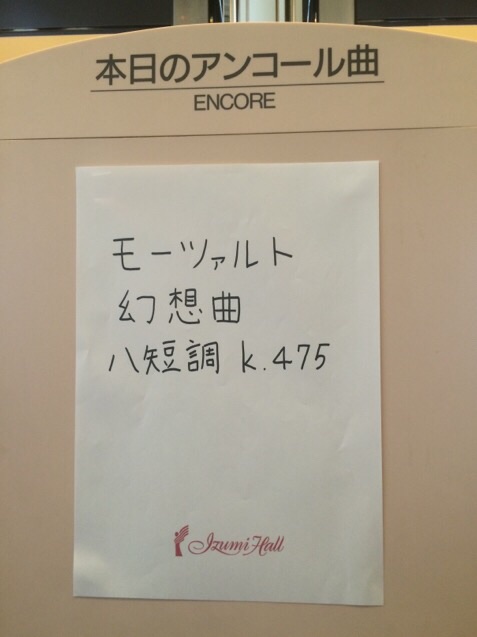 本日のアンコール曲
ENCORE
モーツァルト
幻想曲
ハ短調 k.475
Izumi Hall